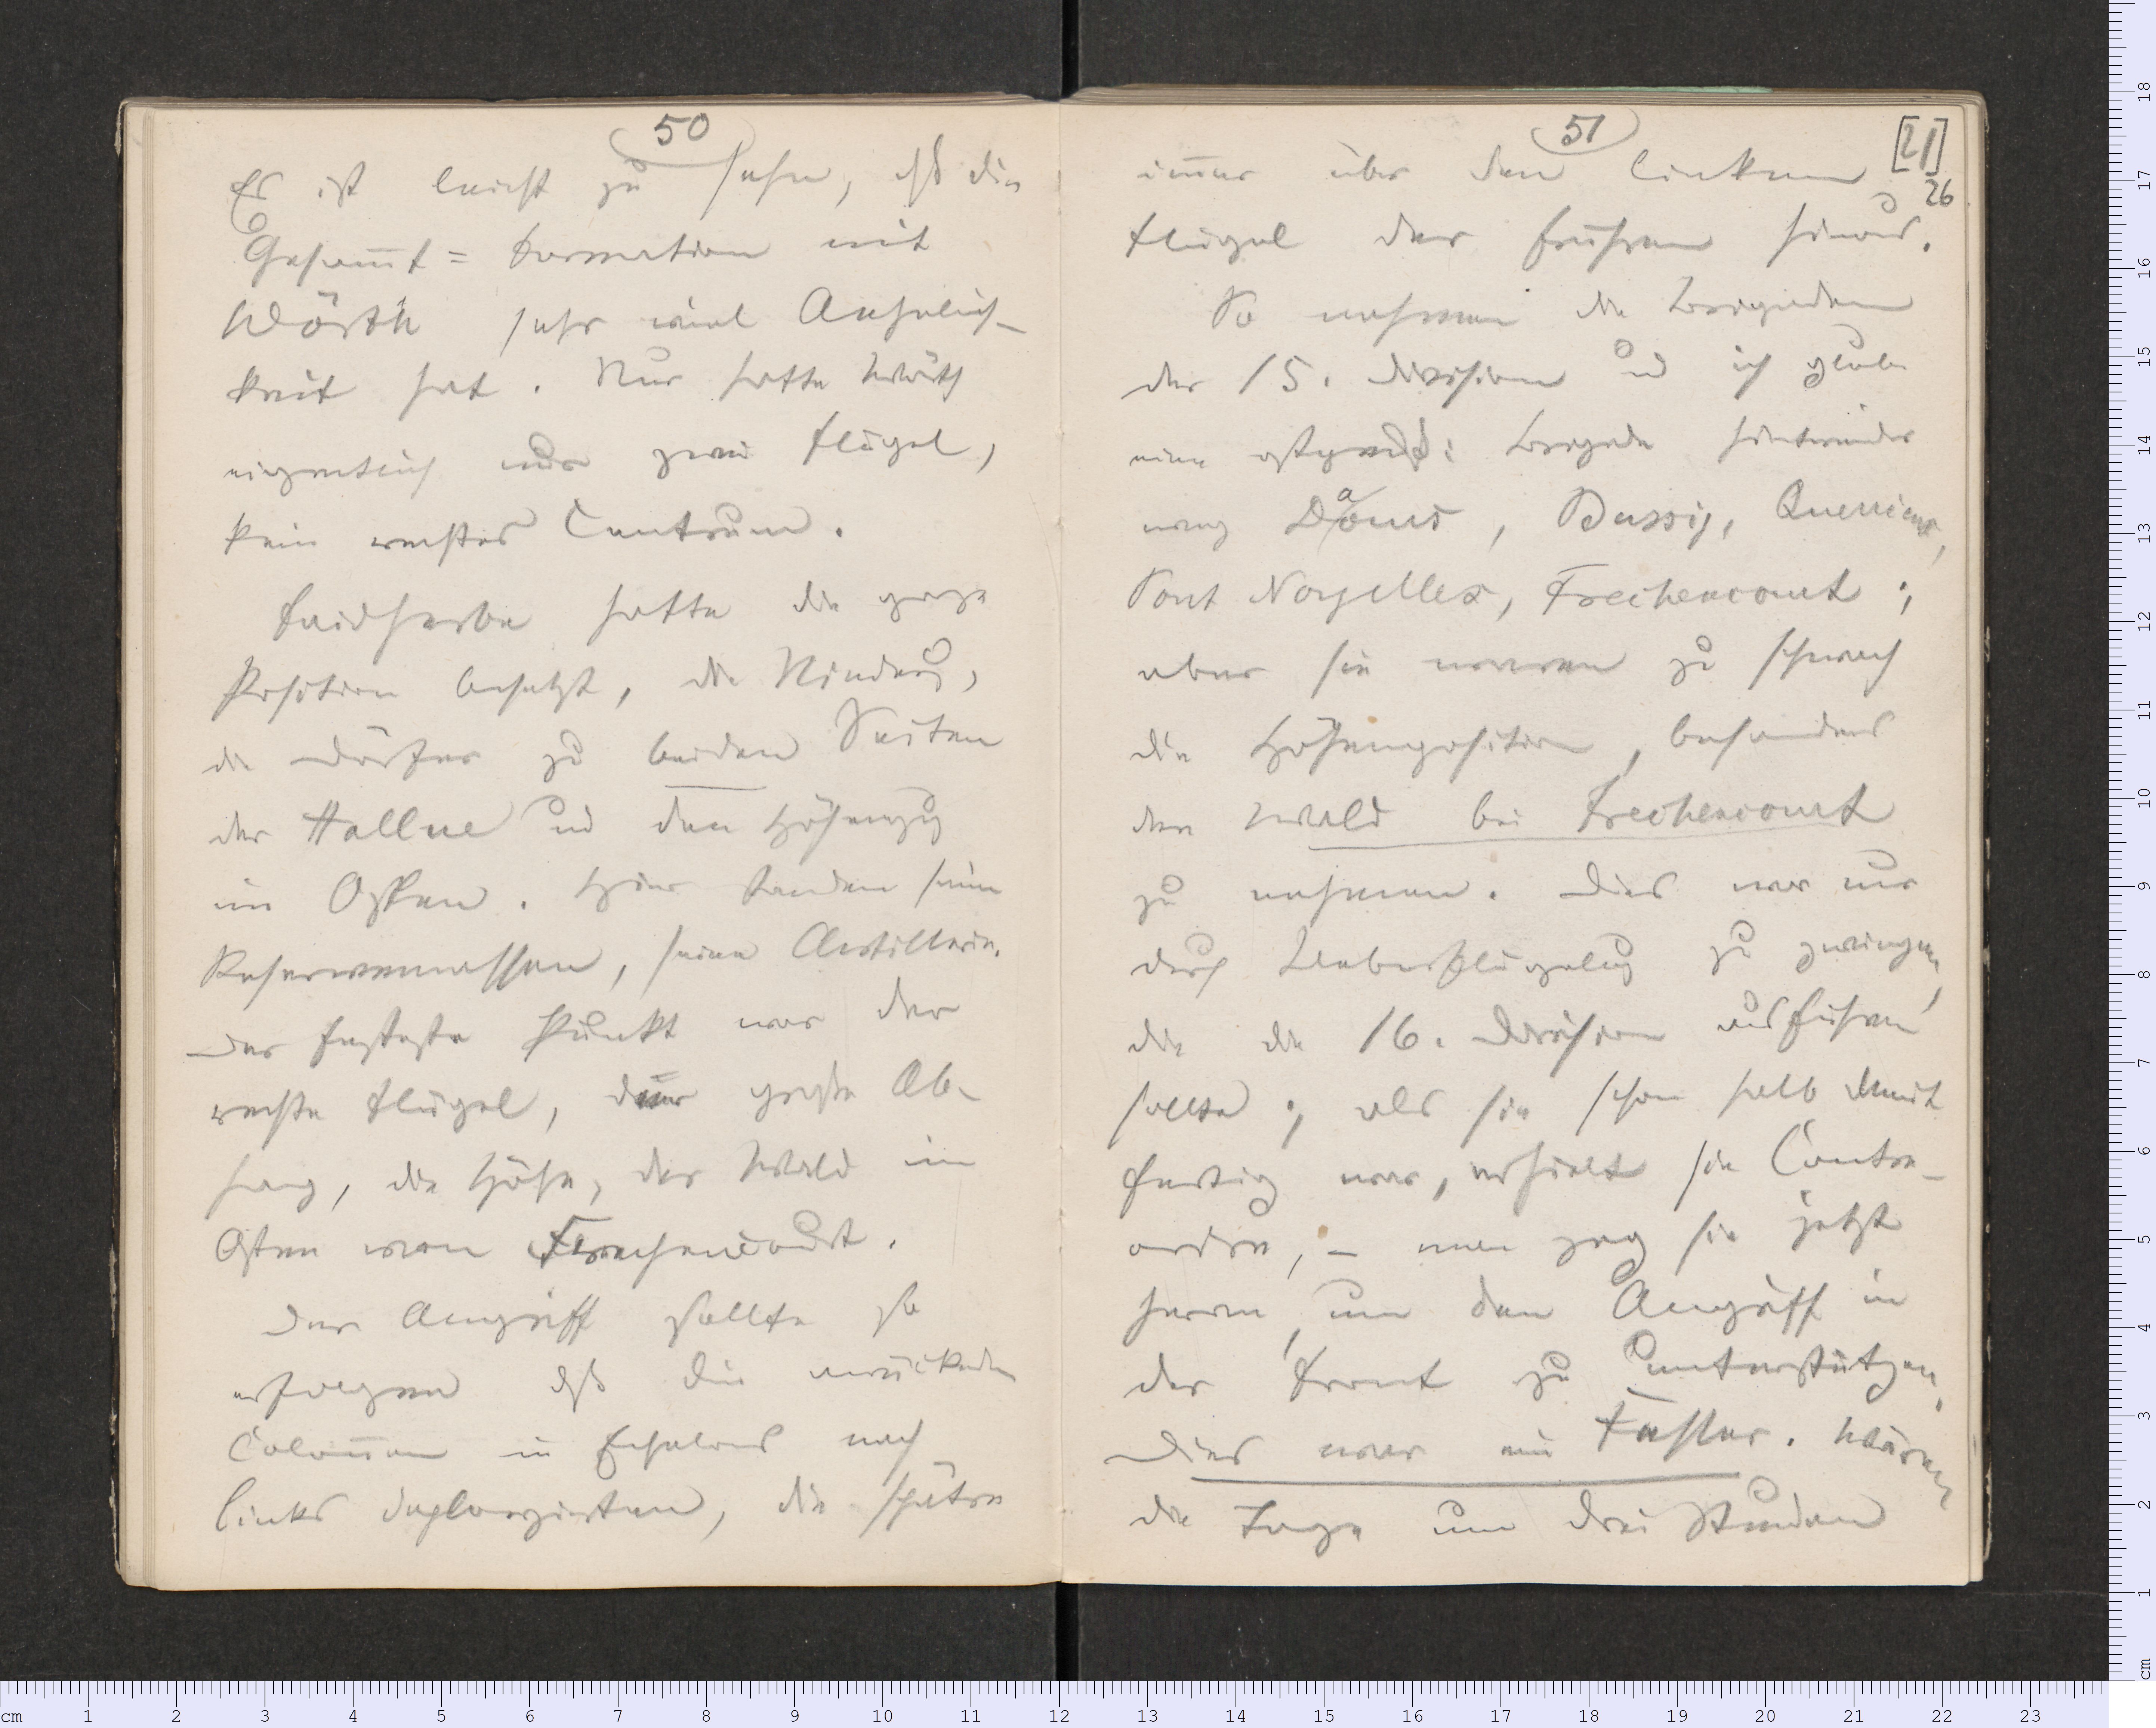 50
Es ist leicht zu sehn, dß die
Gesam̅t=Formation mit
Wörth sehr viel Aehnlich-
keit hat. Nur hatte Wörth
eigentlich nur zwei Flügel,
kein rechtes Centrum.
Faidherbe hatte die ganze
Position besetzt, die Niedrung,
die Dörfer zu beiden Seiten
der Hallue und den Höhenzug
im Osten. Hier standen seine
Reservemassen, seine Artillerie.
Der festeste Punkt war der
rechte Flügel, der große Ab-
hang, die Höhe, der Wald im
Osten von Frechencourt.
Der Angriff sollte so
erfolgen dß die anrückenden
Colon̅en in Echelons nach
links deployirten, die spätre
51
[21]
26
im̅er über den linken
Flügel der frühren hinaus.
So nahmen die Brigaden
der 15. Division und ich glaube
eine ostpreuß: Brigade hintereinander
weg Daours, Bussy, Querrieux,
Pont Noyelles, Frechencourt;
aber sie waren zu schwach
die Höhenposition, besonders
den Wald bei Frechencourt
zu nehmen. Dies war nur
durch Ueberflügelung zu zwingen,
die die 16. Division ausführen
sollte; als sie schon halb damit
fertig war, erhielt sie Contre-
ordre, – man zog sie jetzt
heran, um den Angriff in
der Front zu unterstützen.
Dies war ein Fehler. Wären
die Tage um drei Stunden